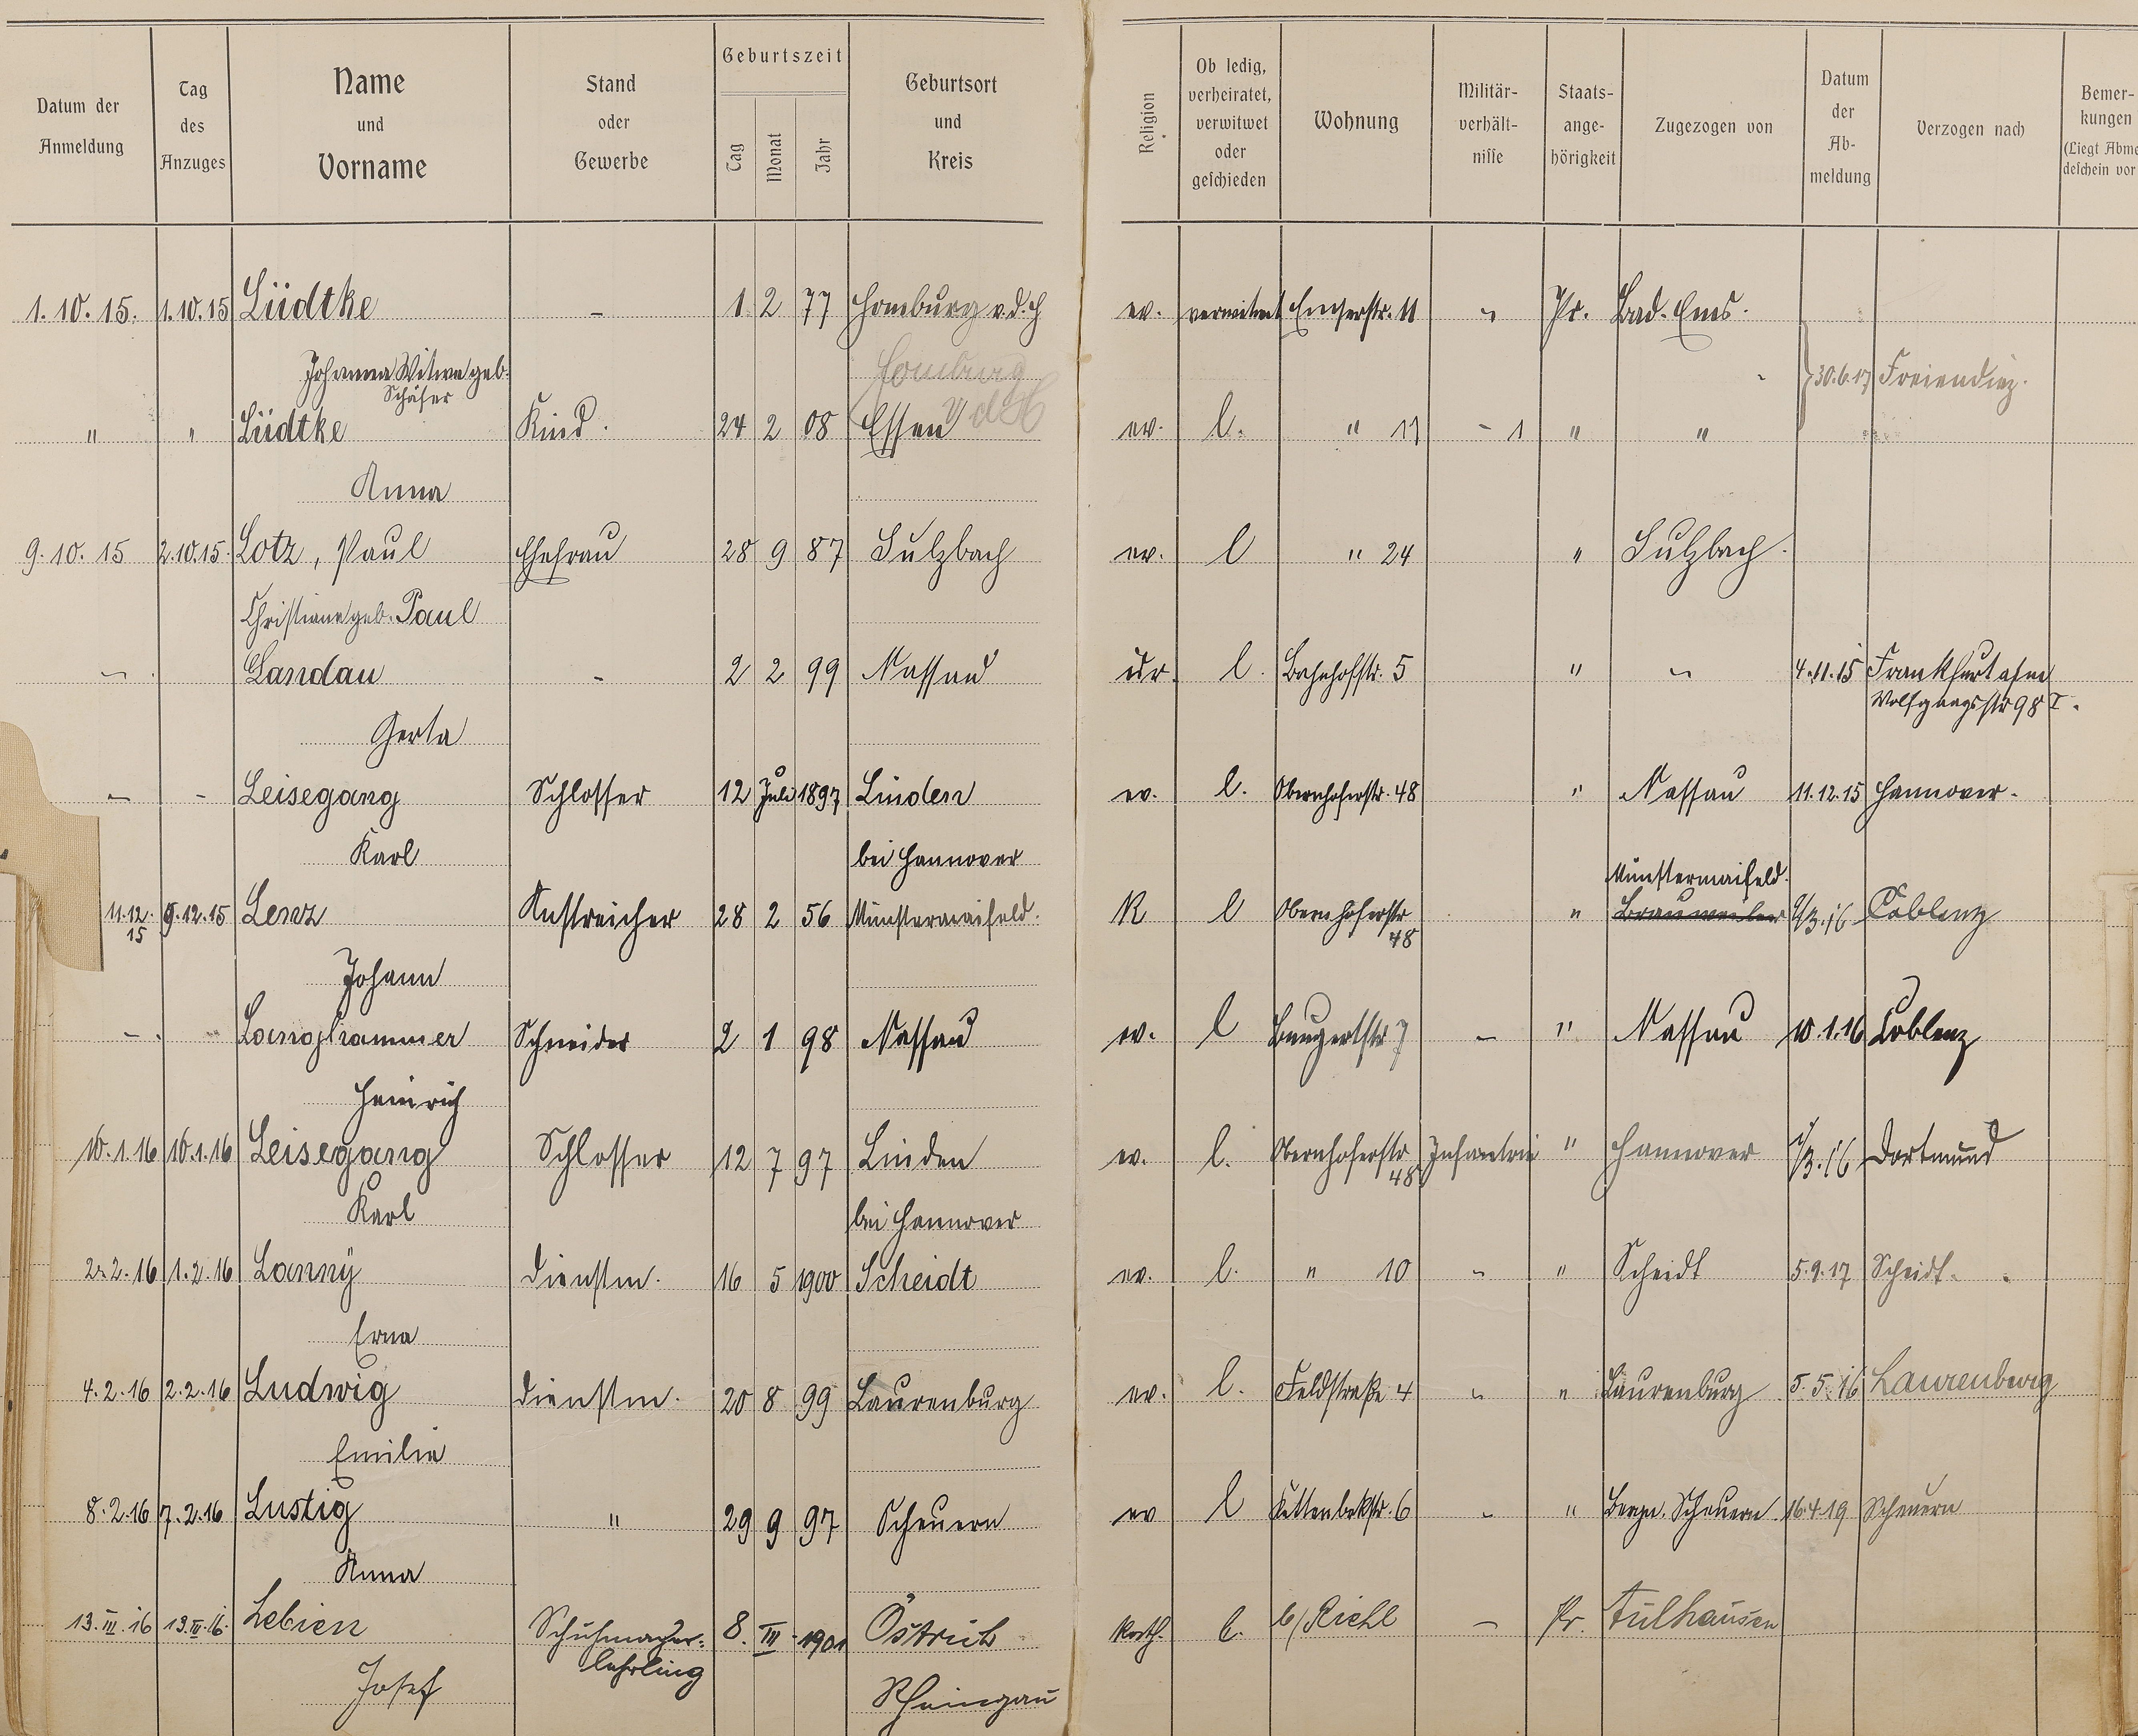 Datum der Anmeldung | Tag des Anzuges | Name und Vorname | Stand oder Gewerbe | Geburtszeit Tag Monat Jahr | Geburtsort und Kreis | Religion | Ob ledig, verheiratet, verwitwet oder geschieden | Wohnung | Militär-verhält-nisse | Staats-ange-hörigkeit | Zugezogen von | Datum der Ab-meldung | Verzogen nach | Bemer-kungen (Liegt Abme deschein vor
1.10.15. 1.10.15 Lüdtke - 1 2 77 Homburg v.d.H ev. verwitwet Emserstr. 11 " Pr. Bad-Ems.
Johanna Witwe geb. Homburg 30.6.17 Freiendiez.
Schäfer v d H
" " Lüdtke Kind. 24 2 08 Essen ev. l. " 11 - 1 " "
Anna
9.10.15 2.10.15. Lotz, Paul Ehefrau 28 9 87 Sulzbach ev. l " 24 " Sulzbach.
Christiane geb. Paul
- Landau - 2 2 99 Nassau isr. l. Bahnhofstr. 5 " - 4.11.15 Frankfurt a/m
Wolfgangsstr 98 I.
Gerta
- - Leisegang Schlosser 12 Juli 1897 Linden ev. l. Obernhoferstr. 48 " Nassau 11.12.15 Hannover.
Karl bei Hannover Münstermaifeld.
11.12. 9.12.15 Lenz Anstreicher 28 2 56 Münstermaifeld. K l Obernhoferstr " Brauweiler /3.16 Coblenz
15 48
Johann
- - Langhammer Schneider 2 1 98 Nassau ev. l Bungertstr 7 - " Nassau 10.1.16 Coblenz
Heinrich
10.1.16 10.1.16 Leisegang Schlosser 12 7 97 Linden ev. l. Obernhoferstr Infanterie " Hannover /3.16 Dortmund
48
Karl bei Hannover
2.2.16 1.2.16 Lanny Dienstm. 16 5 1900 Scheidt ev. l. " 10 - " Scheidt 5.9.17 Scheidt.
Erna
4.2.16 2.2.16 Ludwig Dienstm. 20 8 99 Laurenburg ev. l. Feldstraße 4 " " Laurenburg 5.5.16 Laurenburg
Emilie
8.2.16 7.2.16 Lustig " 29 9 97 Scheuern ev l Kettenbrkstr. 6 - " Bergn. Scheuern. 16.4.19 Scheuern
Anna
13.III.16 13.III.16. Lebien Schuhmacher- 8. III. 1901 Östrich kath. l. b/Riehl - Pr. Aulhausen
lehrling
Josef Rheingau